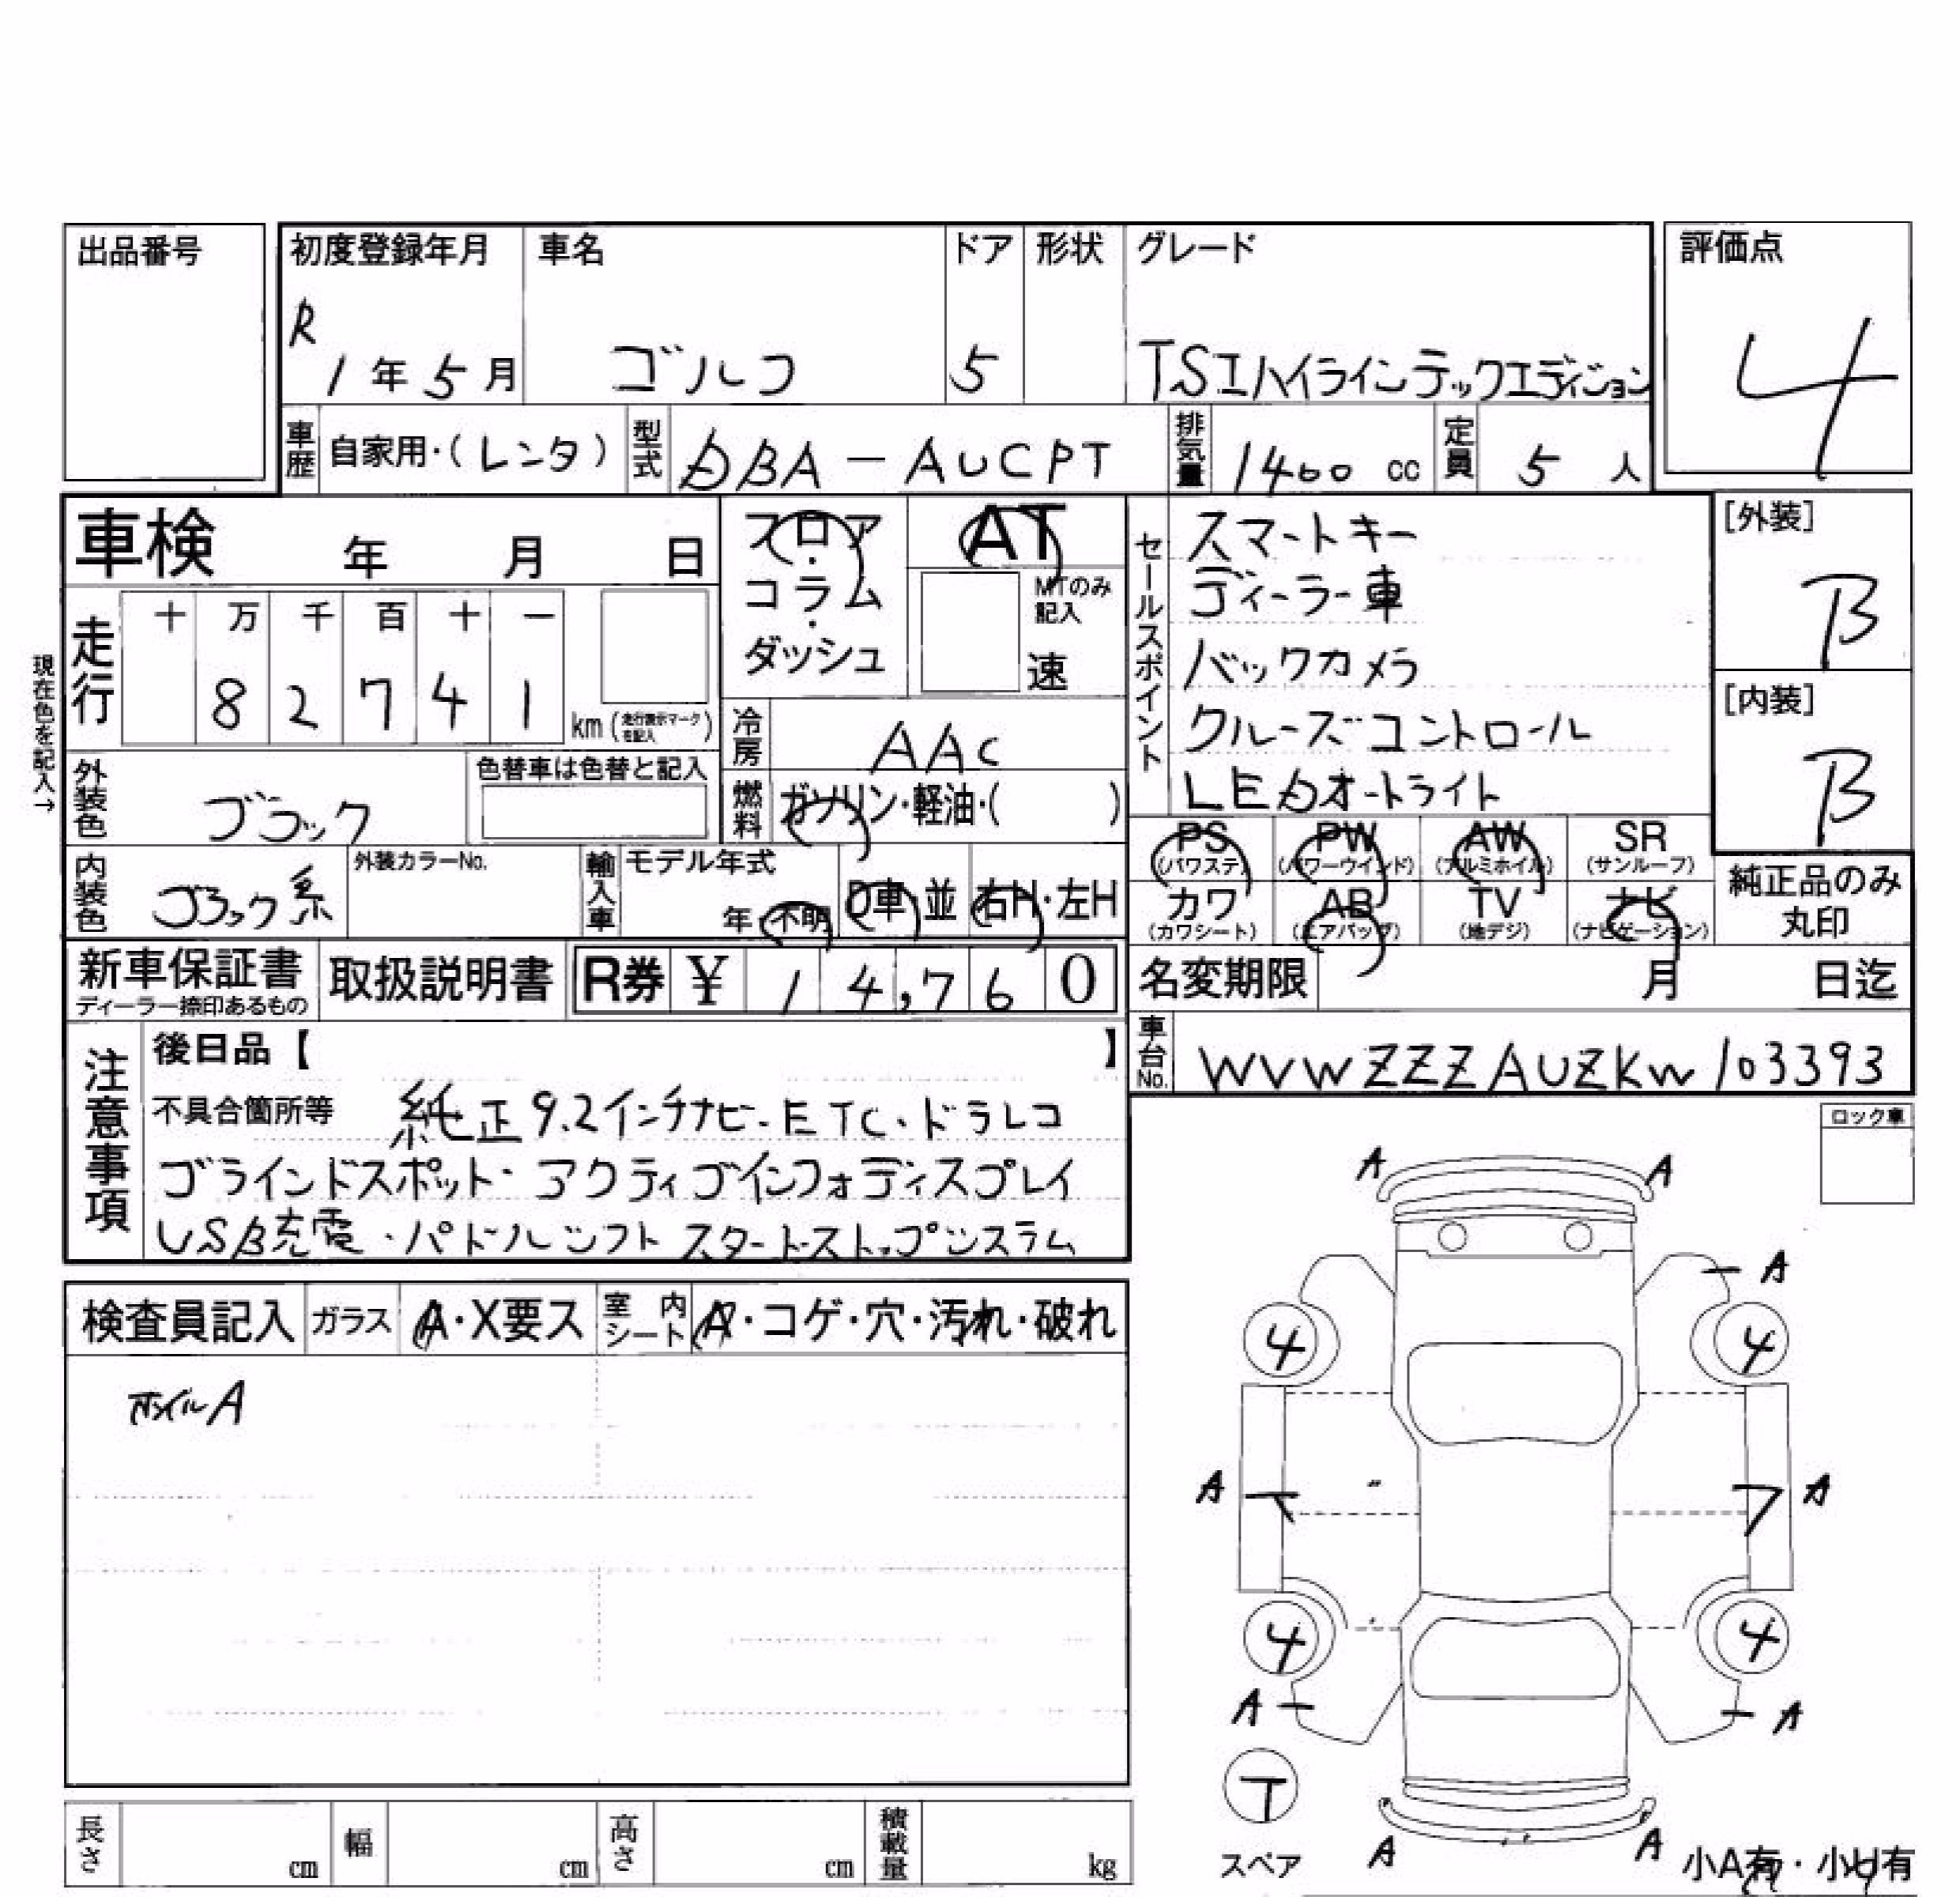 出品番号
初度登録年月 車名 ドア 形状 グレード 評価点
R
1年5月 ゴルフ 5 TSIハイラインテックエディション 4
車歴 自家用・(レンタ) 型式 DBA-AUCPT 排気量 1400 cc 定員 5 人
車検 年 月 日
フロア・コラム・ダッシュ
AT
MTのみ記入
速
セールスポイント
スマートキー
ディーラー車
バックカメラ
クルーズコントロール
LEDオートライト
[外装]
B
[内装]
B
現在色を記入→
走行 十 万 千 百 十 一
8 2 7 4 1 km (走行表示マークを記入)
冷房 AAC
外装色 ブラック 色替車は色替と記入
燃料 ガソリン・軽油・( )
内装色 ブラック系 外装カラーNo. 輸入車 モデル年式 年・不明 D車・並 右H・左H
PS (パワステ) PW (パワーウインド) AW (アルミホイル) SR (サンルーフ)
カワ (カワシート) AB (エアバッグ) TV (地デジ) ナビ (ナビゲーション)
純正品のみ
丸印
新車保証書 ディーラー捺印あるもの 取扱説明書 R券 ¥ 1 4,7 6 0
名変期限 月 日迄
車台No. WVWZZZAUZKW103393
注意事項
後日品【 】
不具合箇所等 純正9.2インチナビ・ETC・ドラレコ
ブラインドスポット・アクティブインフォディスプレイ
USB充電・パドルシフト スタートストップシステム
ロック車
検査員記入 ガラス A・X要ス 室内シート A・コゲ・穴・汚れ・破れ
ホイルA
A A
A
4 4
A A
4 4
A A
T
スペア
A A
小A有・小U有
長さ cm 幅 cm 高さ cm 積載量 kg